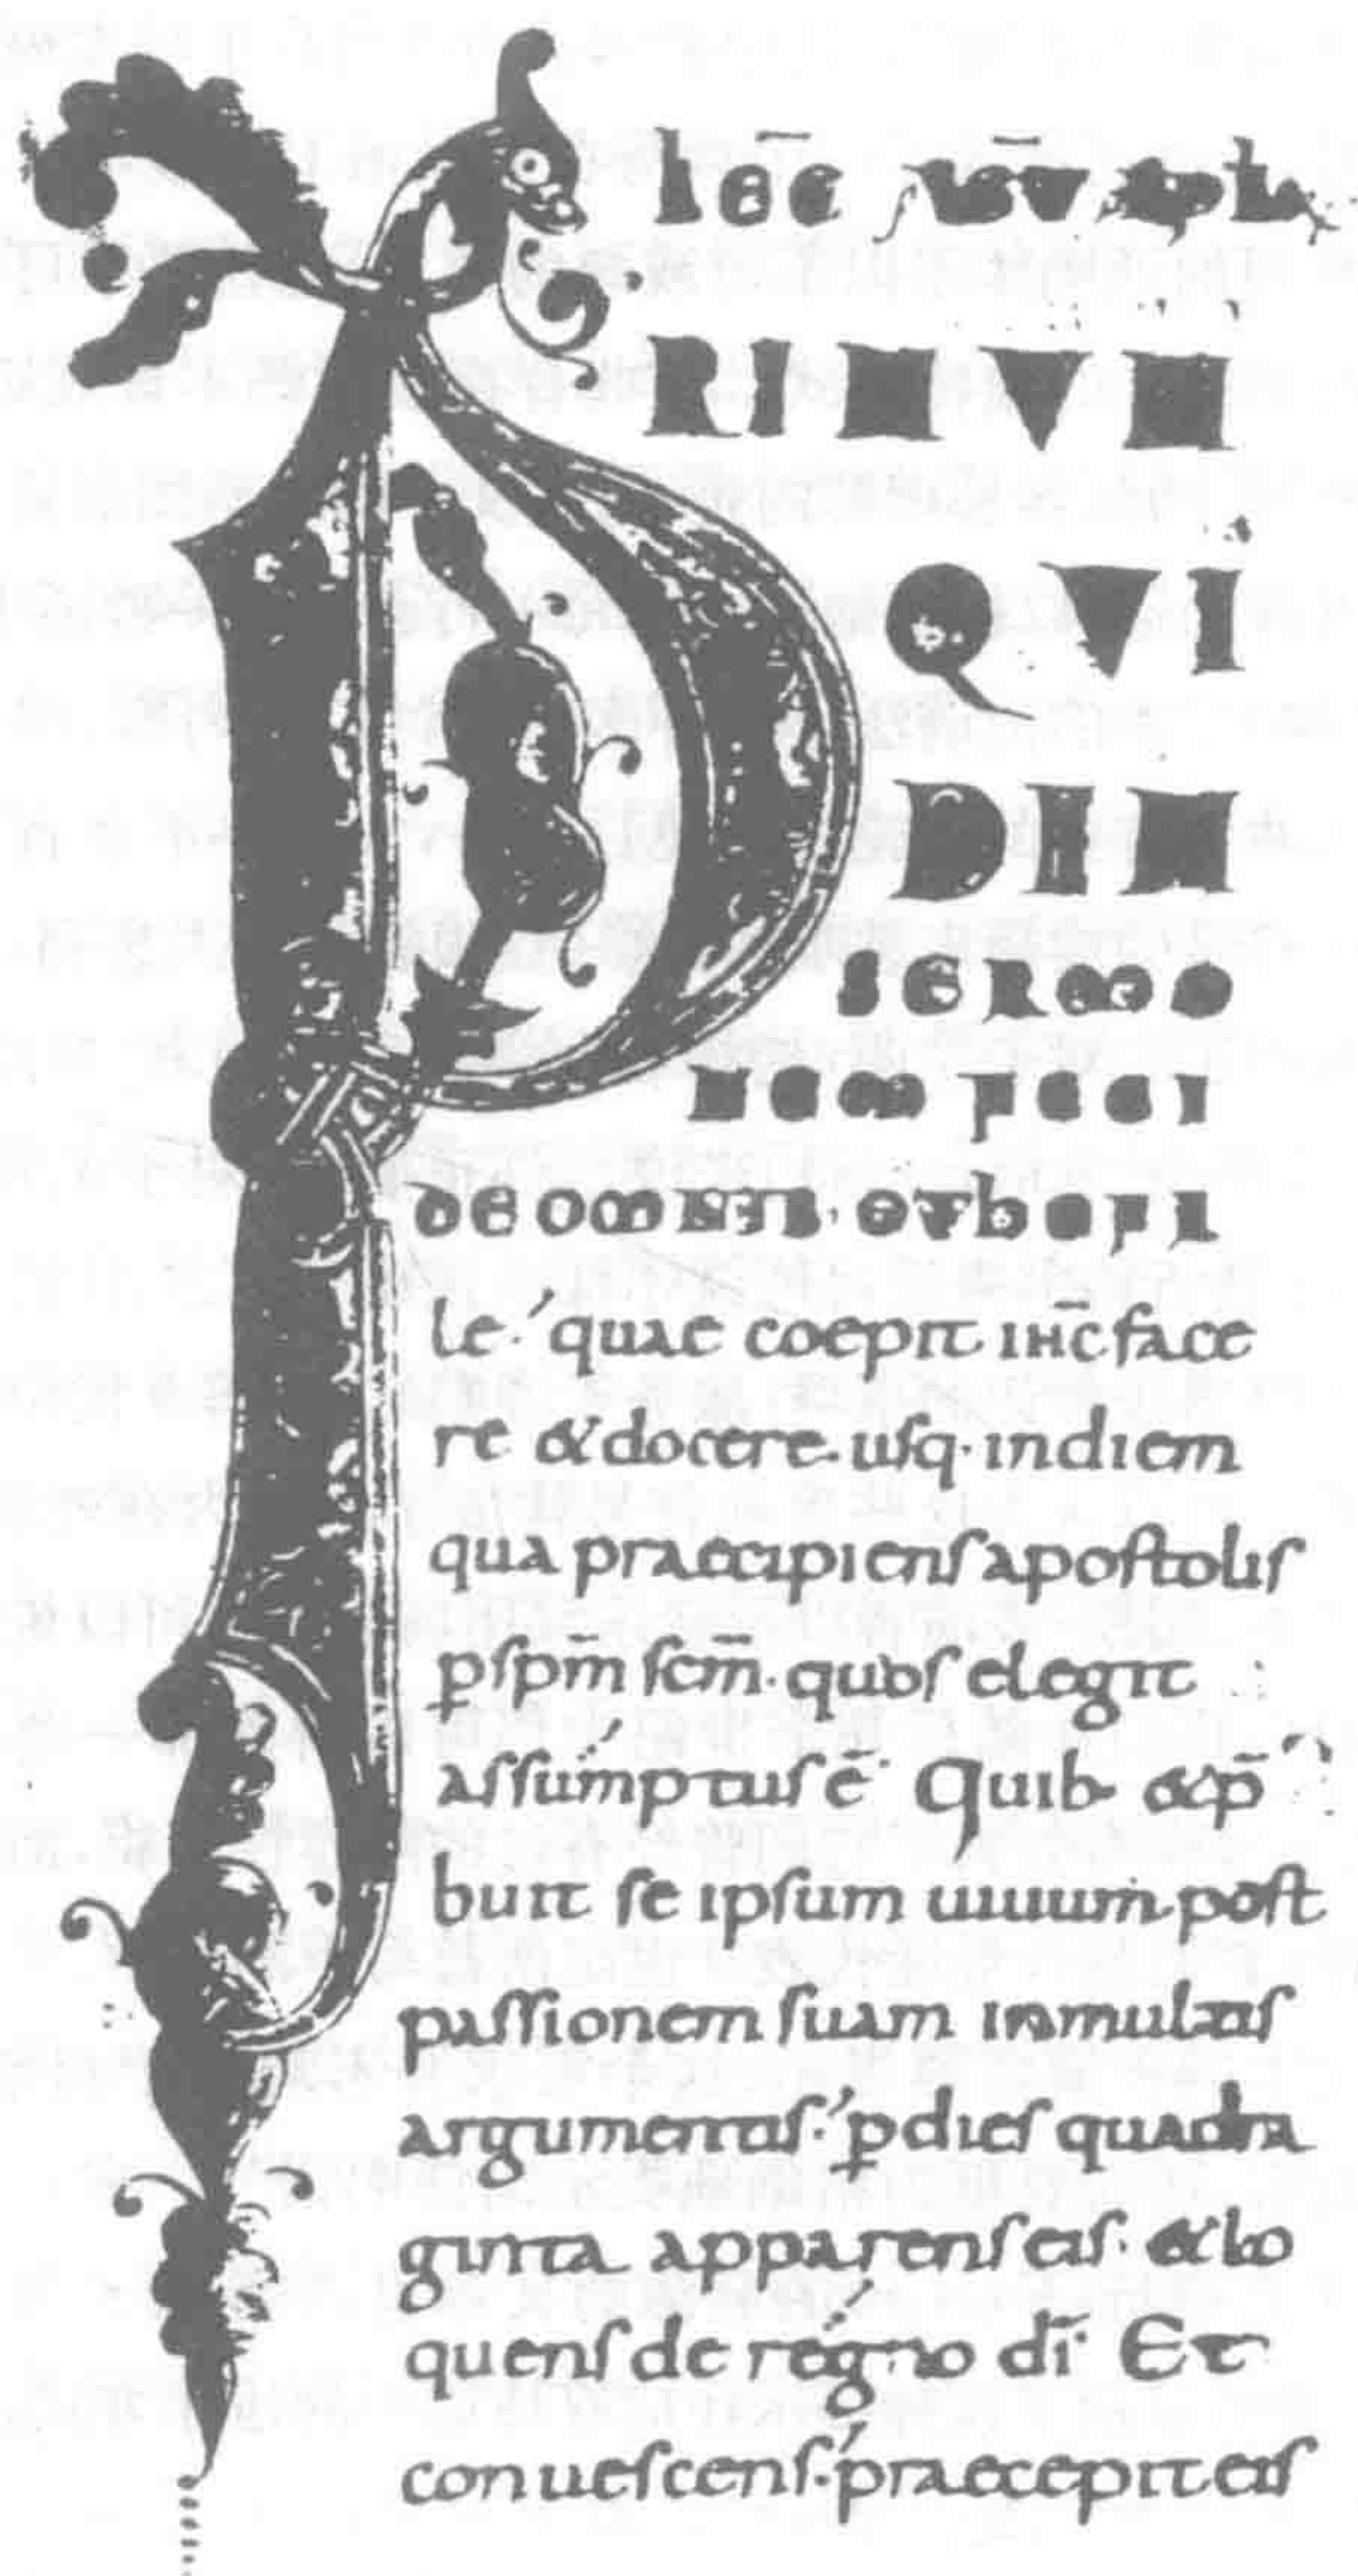 hoc̄
PRIMUM
QUI
DEM
SERMO
NEM FECI
DE OMNIB; O THEOFI
le. quae coepit ihc̄ face
re & docere. usq· indiem
qua praecipiens apostolis
ꝑ sp̄m sc̄m. quos elegit
assumptus ē. Quib; & p̄
buit se ipsum uiuum post
passionem suam inmultis
argumentis. ꝑ dies quadra
ginta apparens eis. & lo
quens de regno dī. Et
conuescens. praecepit eis